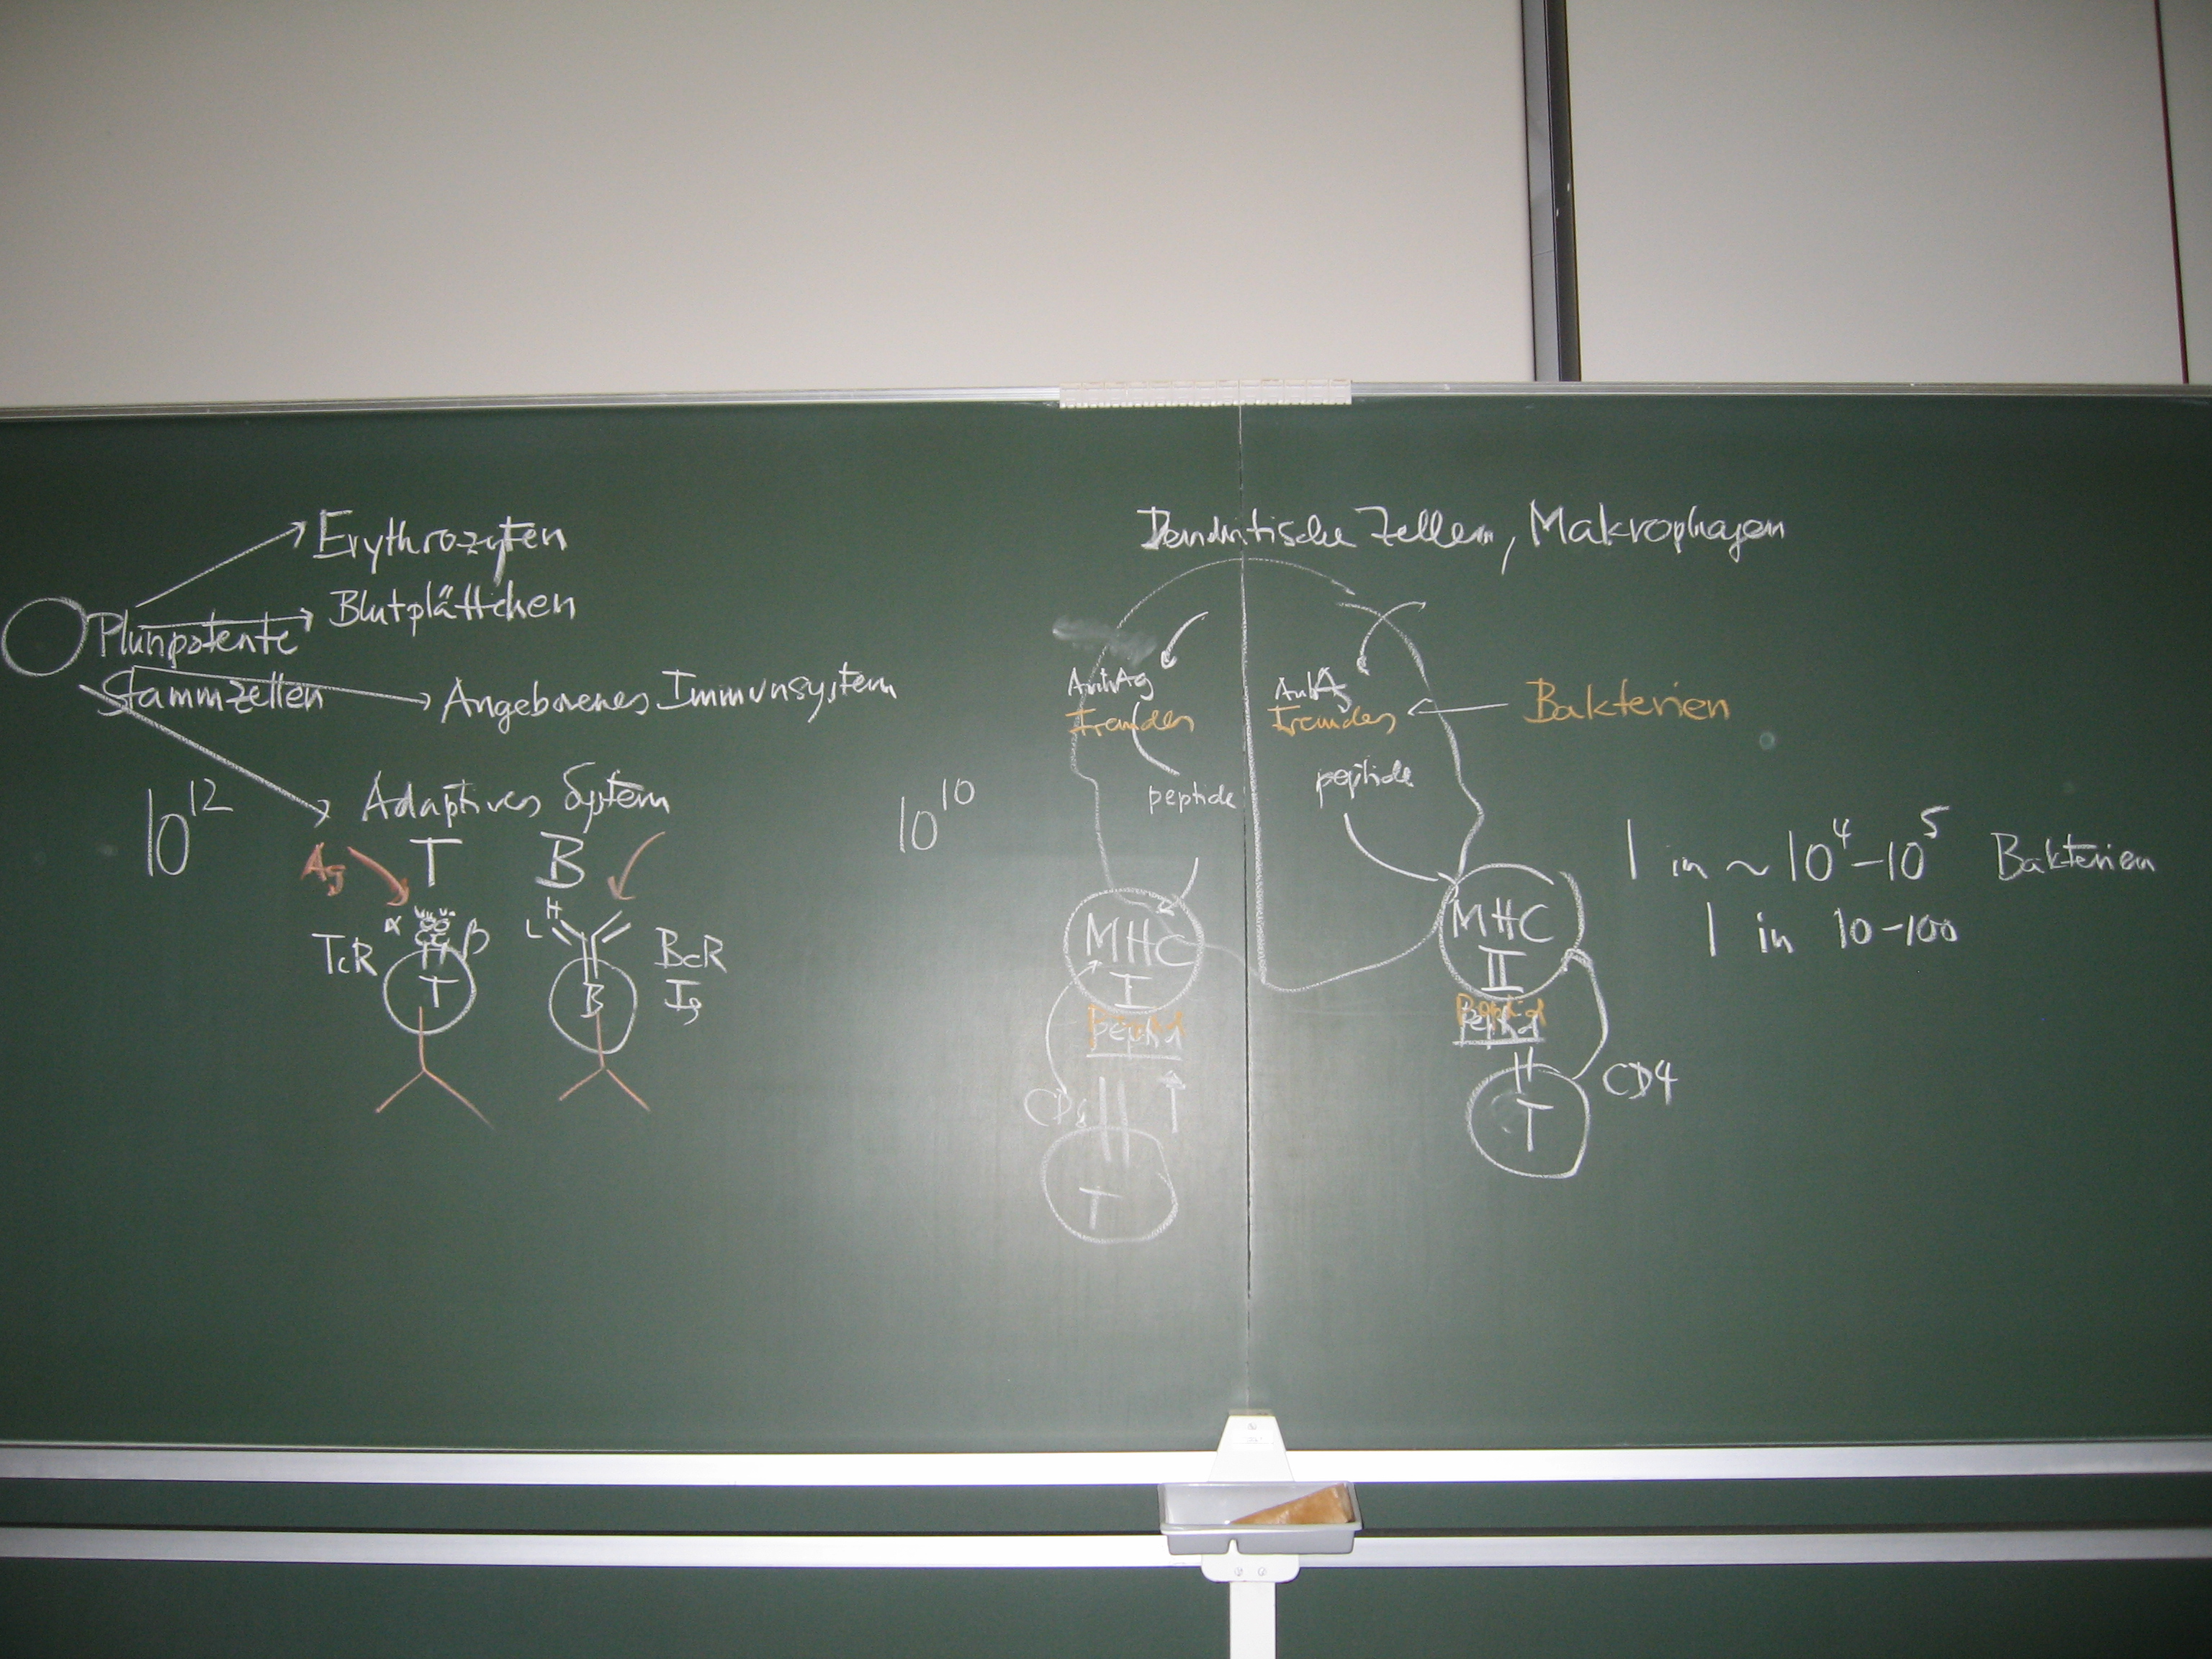 Erythrozyten
Pluripotente
Stammzellen
Blutplättchen
Angeborenes Immunsystem
10^12
Adaptives System
Ag
T
B
TcR
α
β
T
H
L
B
BcR
Ig
10^10
Dendritische Zellen, Makrophagen
Fremdes
peptide
Fremdes
Bakterien
peptide
MHC
I
Peptid
CD8
T
MHC
II
Peptid
CD4
T
1 in ~ 10^4-10^5 Bakterien
1 in 10-100